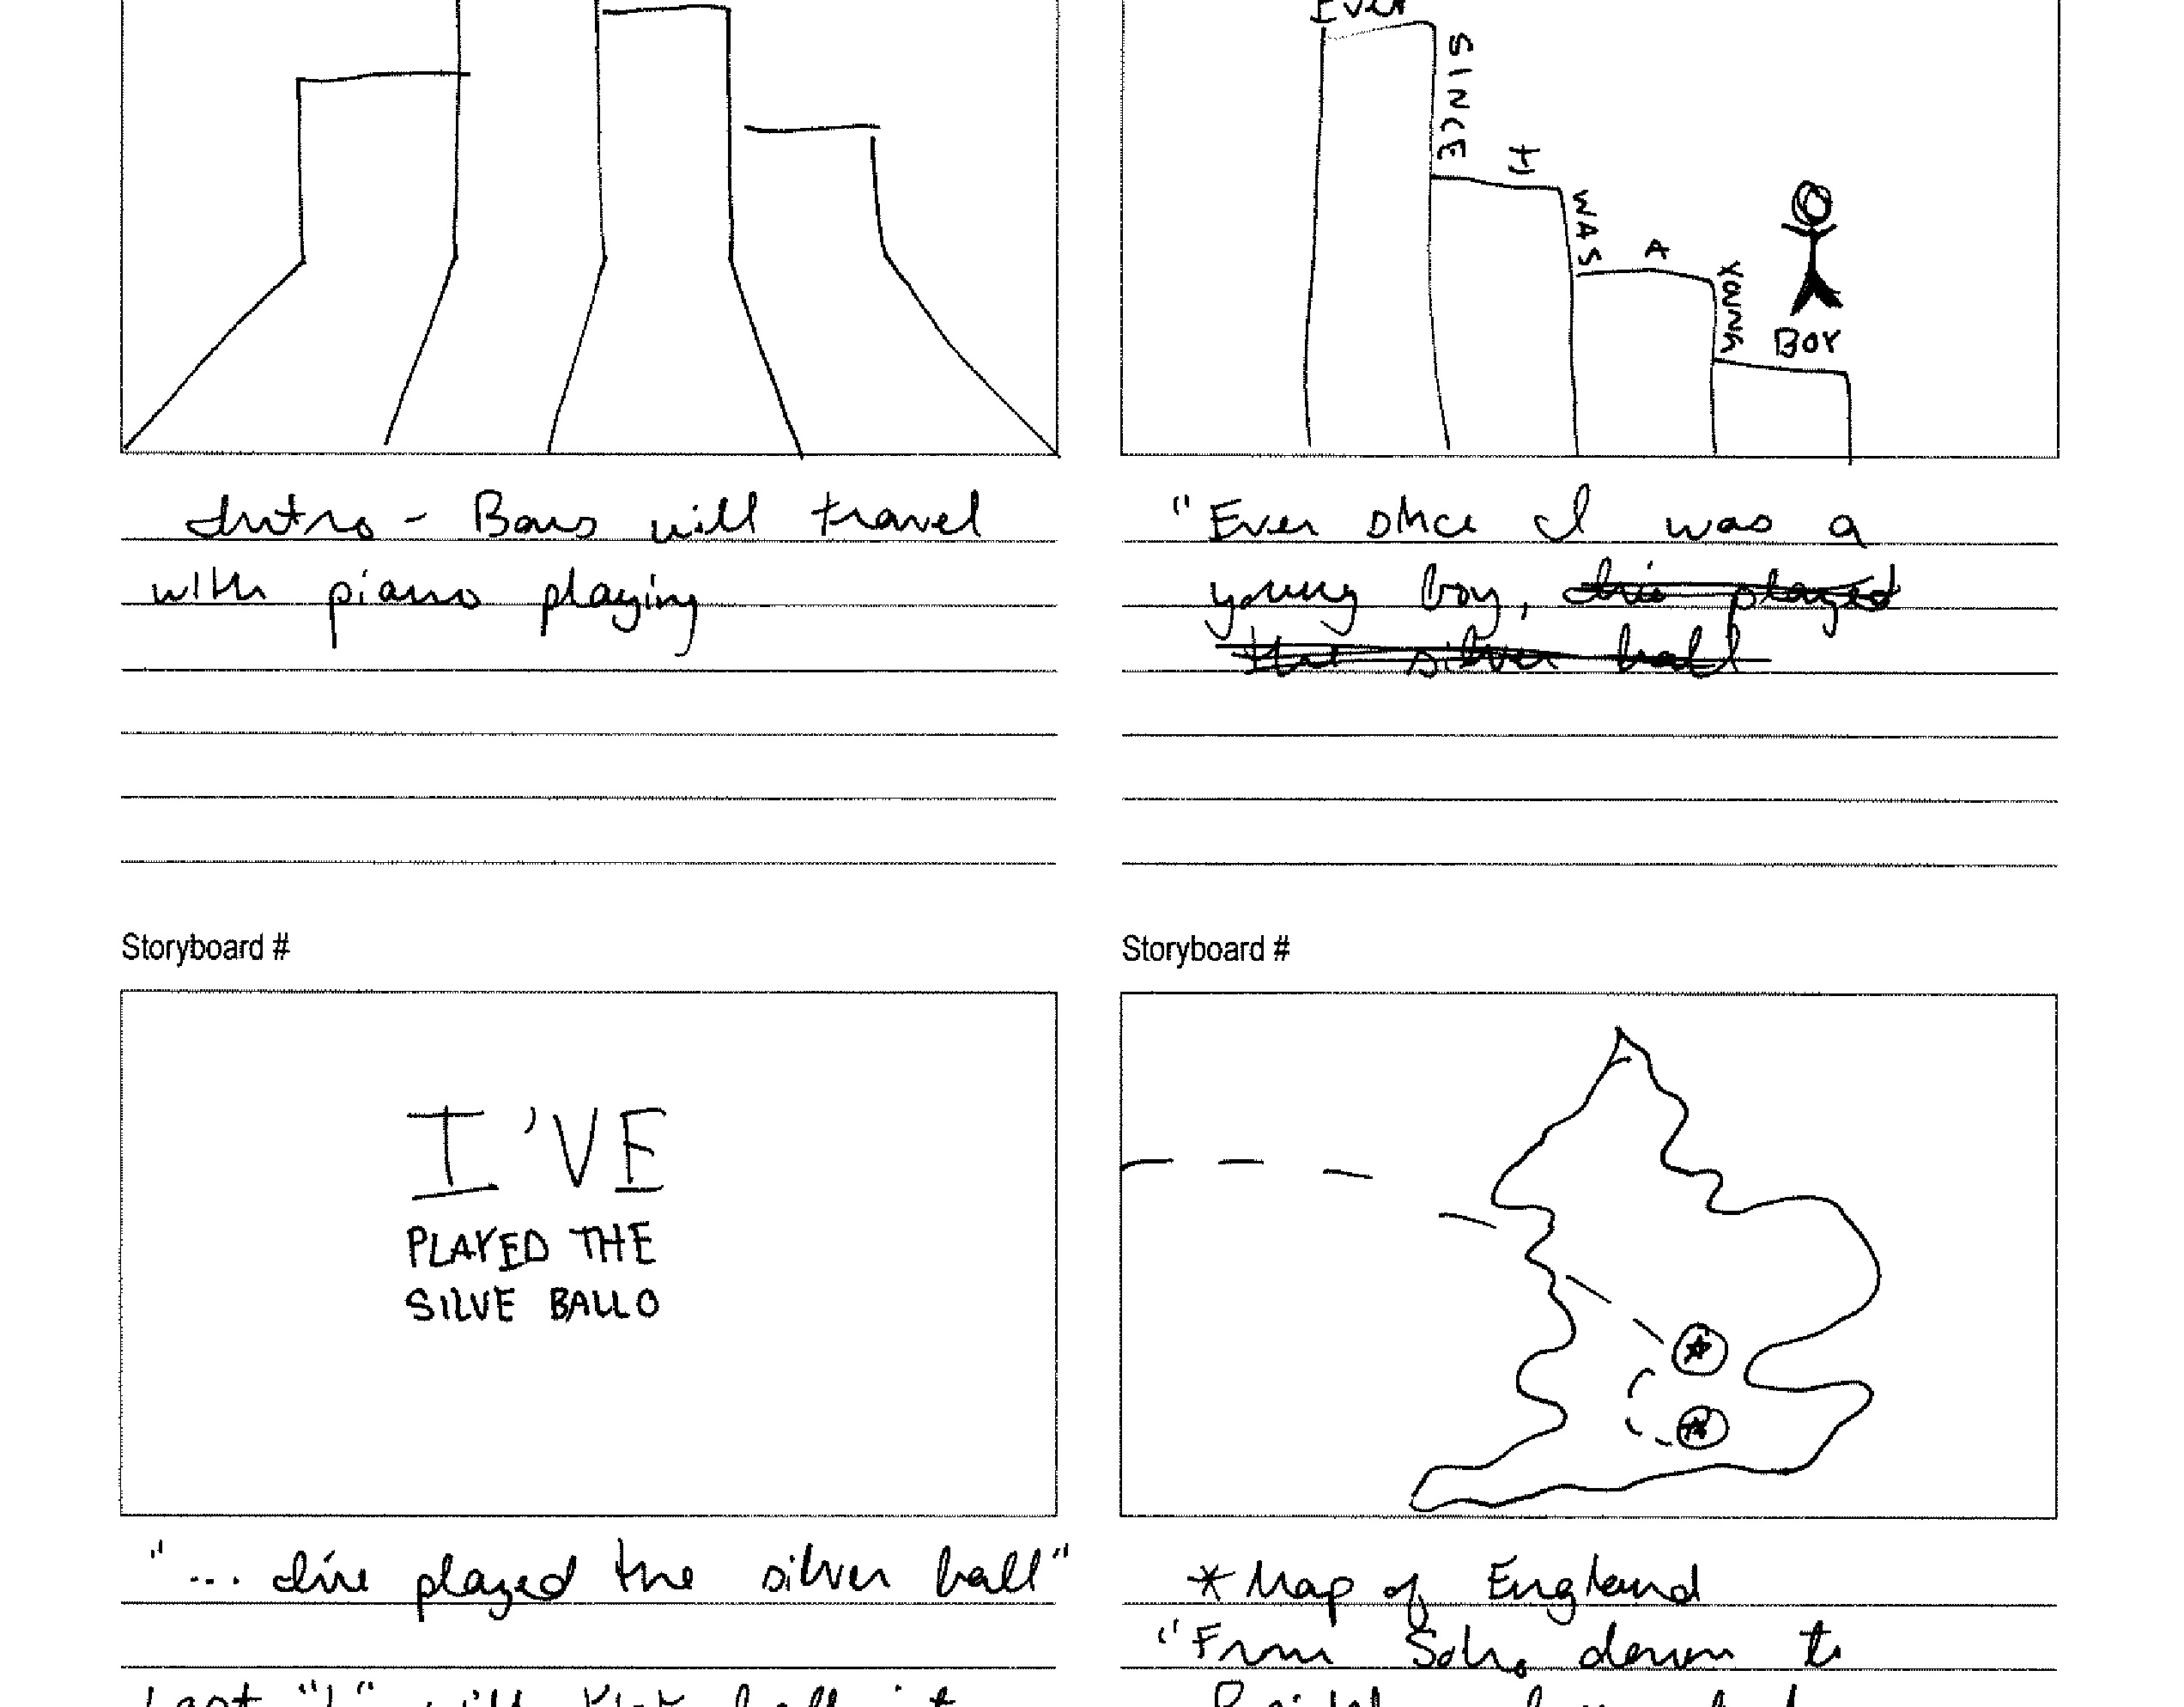 Ever
SINCE
I
WAS
A
YOUNG
BOY
Intro - Bars will travel
with piano playing
"Ever since I was a
young boy, I've played
the silver ball
Storyboard #
Storyboard #
I'VE
PLAYED THE
SILVE BALLO
"... I've played the silver ball"
* Map of England
"From Soho down to